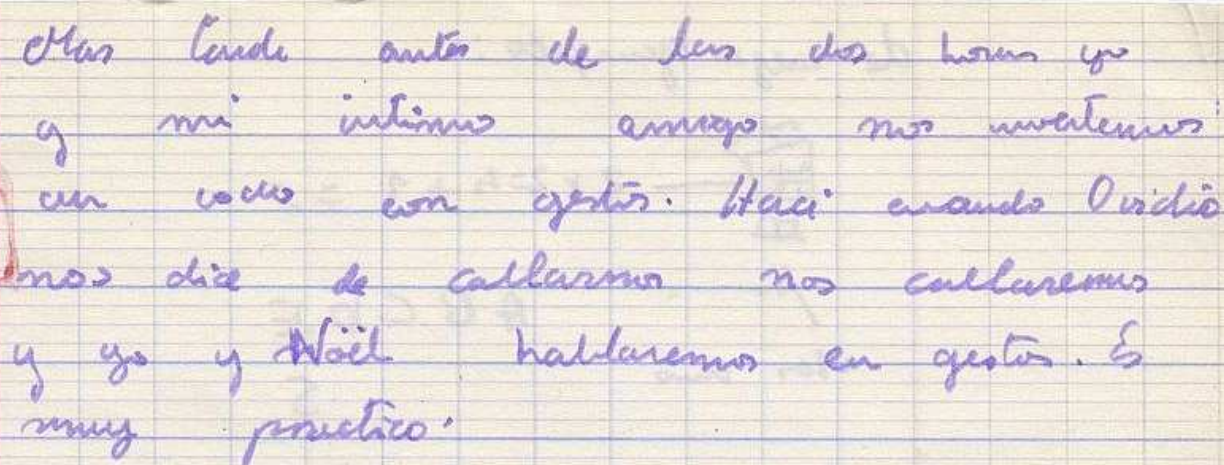 Mas tarde antes de las dos horas yo
y mi intimo amigo nos inventemos
un codo con gestos. Haci cuando Ovidio
nos dice de callarnos nos callaremos
y yo y Nöel hablaremos en gestos. Es
muy practico.